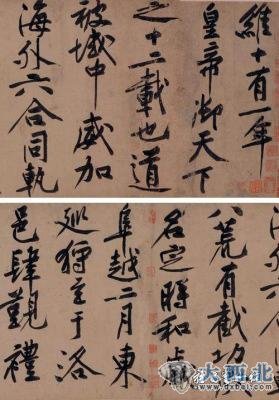 維十有一年
皇帝御天下
之十二載也道
被域中威加
海外六合同軌
八荒有截功成
名定時和歲
阜越二月東
巡狩至于洛
邑肆覲禮
大西北